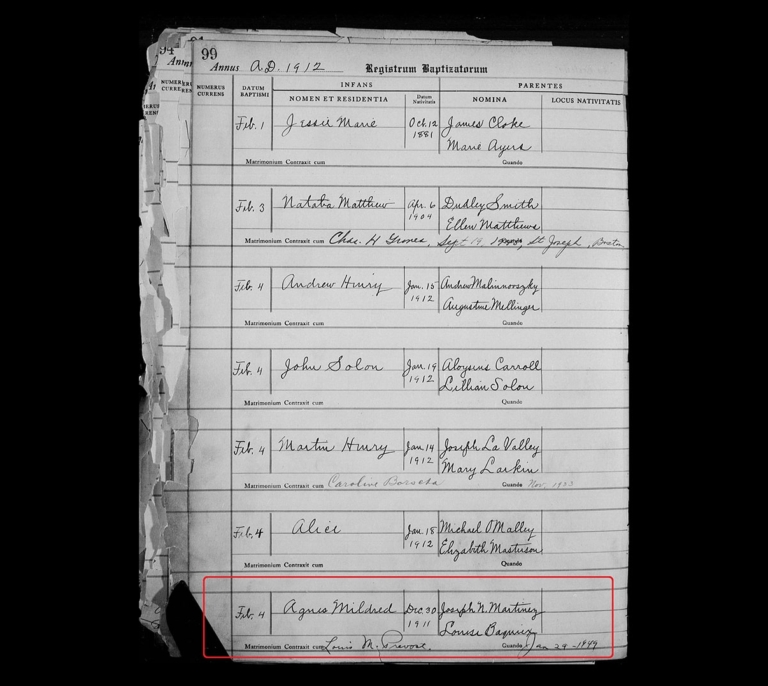 99
Annus A.D. 1912 Registrum Baptizatorum
NUMERUS CURRENS DATUM BAPTISMI INFANS PARENTES
NOMEN ET RESIDENTIA Datum Nativitatis NOMINA LOCUS NATIVITATIS
Feb. 1 Jessie Marie Oct. 12 James Cloke
1881 Marie Ayers
Matrimonium Contraxit cum Quando
Feb. 3 Natalia Matthew Apr. 6 Dudley Smith
1904 Ellen Matthews
Matrimonium Contraxit cum Chas. H Groves, Sept 19, St Joseph, Boston
Feb. 4 Andrew Henry Jan. 15 Andrew Malinnorszky
1912 Augustine Mellinger
Matrimonium Contraxit cum Quando
Feb. 4 John Solon Jan. 19 Aloysius Carroll
1912 Lillian Solon
Matrimonium Contraxit cum Quando
Feb. 4 Martin Henry Jan 14 Joseph La Valley
1912 Mary Larkin
Matrimonium Contraxit cum Caroline Quando Nov. 1933
Feb. 4 Alice Jan. 18 Michael O'Malley
1912 Elizabeth Masterson
Matrimonium Contraxit cum Quando
Feb. 4 Agnes Mildred Dec. 30 Joseph N. Martinez
1911 Louise
Matrimonium Contraxit cum Louis M. Prevost Quando Jan 29-1949